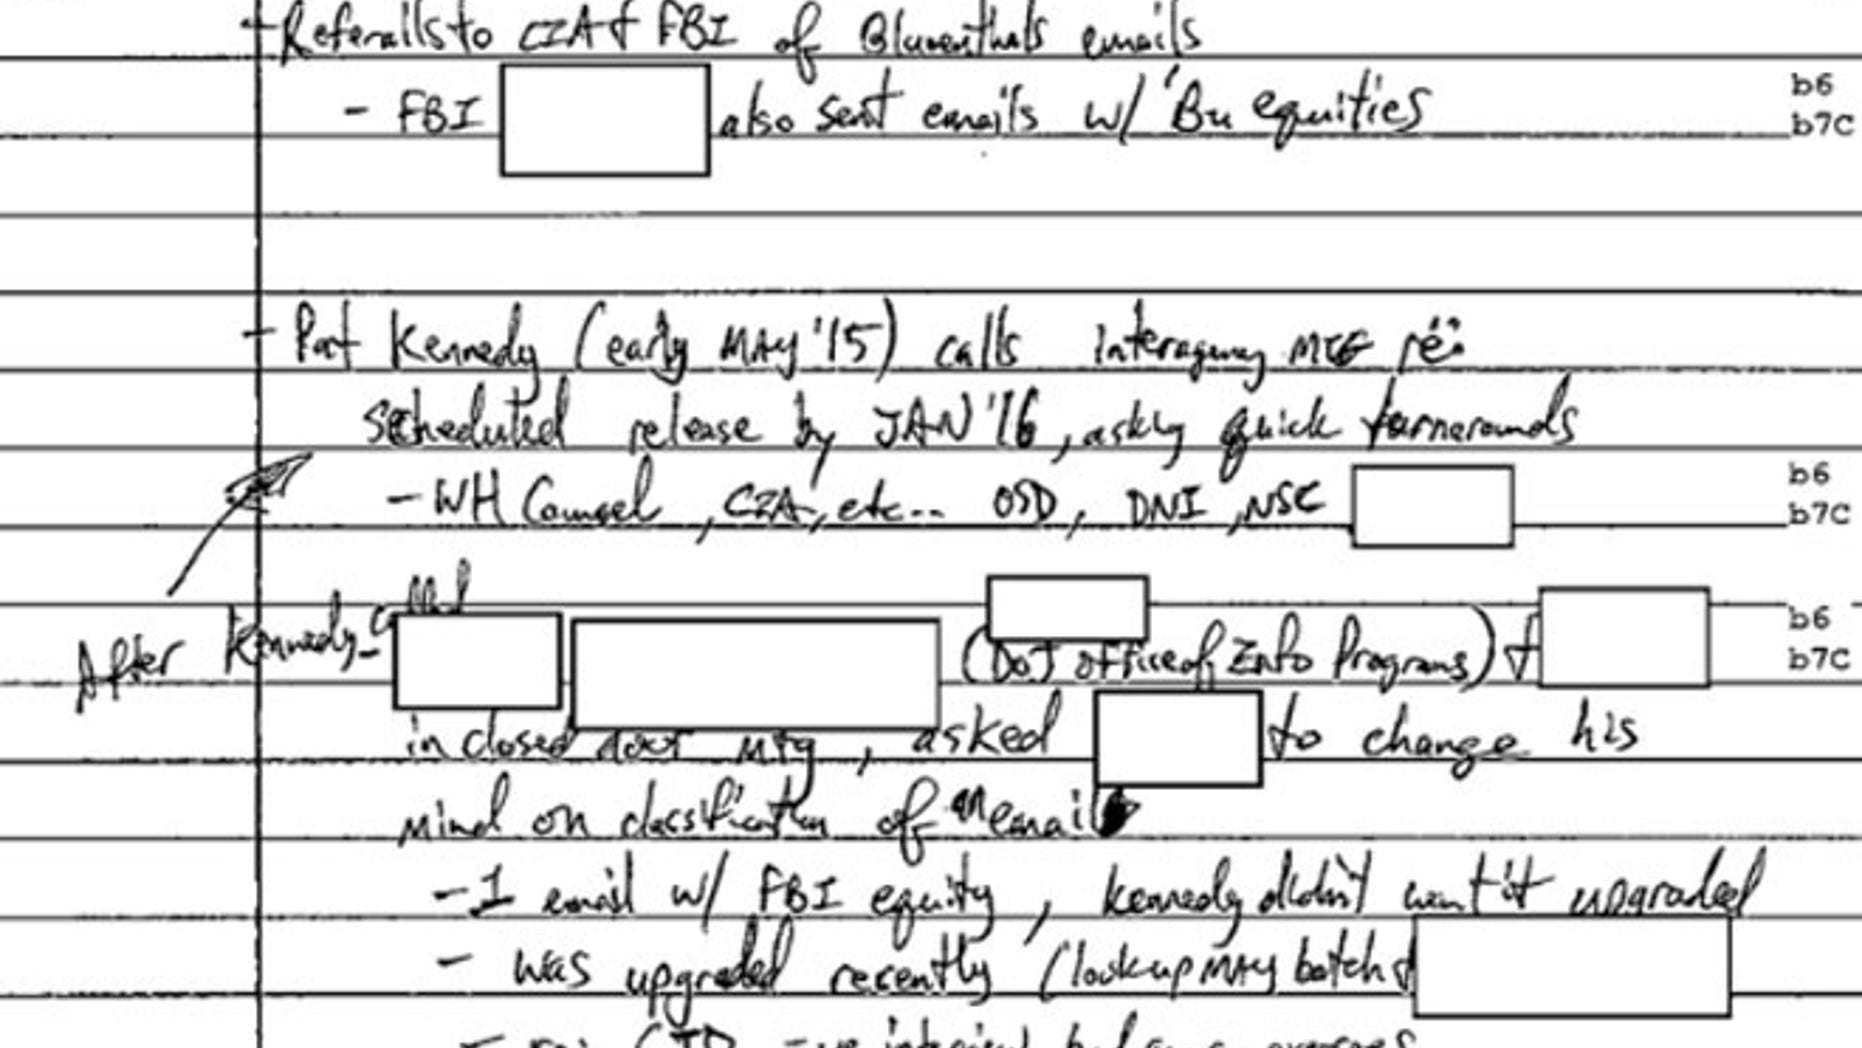 - Referalls to CIA & FBI of Blumenthals emails
- FBI also sent emails w/ Bu equities b6
b7C
- Pat Kennedy (early MAY '15) calls interagency MTG re:
scheduled release by JAN '16, asking quick turnarounds
- WH Counsel, CIA, etc... OSD, DNI, NSC b6
b7C
After Kennedy called (DOJ Office of Info Programs) & b6
b7C
in closed door mtg, asked to change his
mind on classification of an email
- 1 email w/ FBI equity, Kennedy didn't want it upgraded
- was upgraded recently (lookup MAY batch &